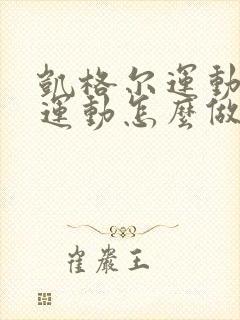 凱格尔運動
運動怎麼做
崔巖王